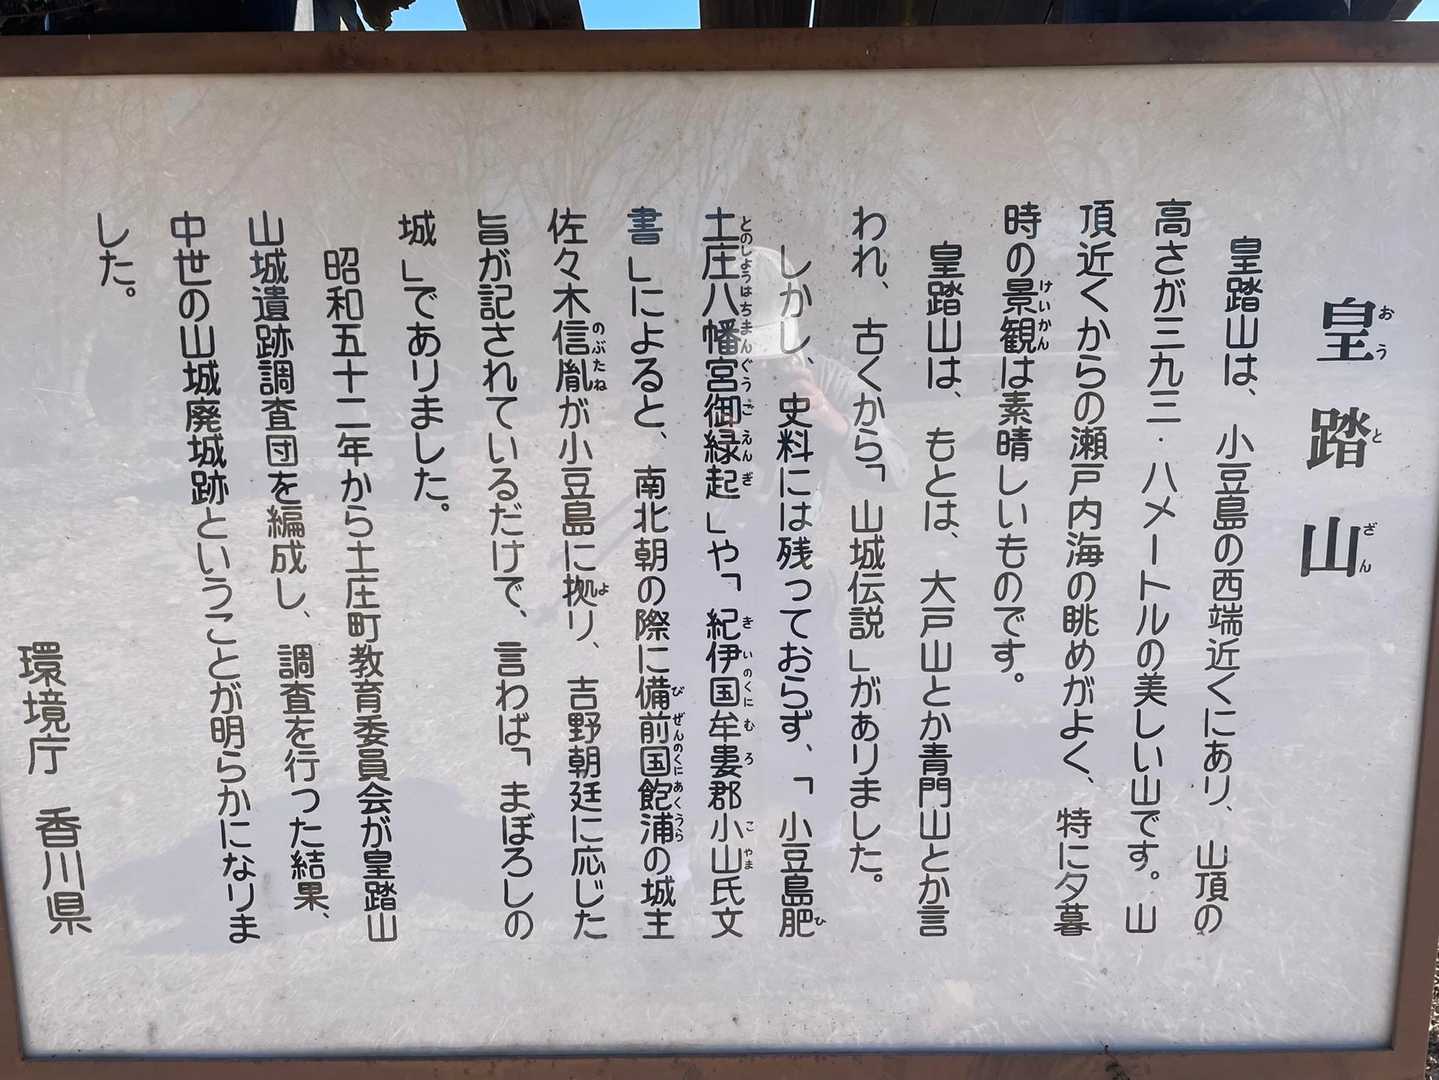 皇踏山
皇踏山は、小豆島の西端近くにあり、山頂の
高さが三九三・八メートルの美しい山です。山
頂近くからの瀬戸内海の眺めがよく、特に夕暮
時の景観は素晴しいものです。
皇踏山は、もとは、大戸山とか青門山とか言
われ、古くから「山城伝説」がありました。
しかし、史料には残っておらず、「小豆島肥
土庄八幡宮御緑起」や「紀伊国牟婁郡小山氏文
書」によると、南北朝の際に備前国飽浦の城主
佐々木信胤が小豆島に拠り、吉野朝廷に応じた
旨が記されているだけで、言わば「まぼろしの
城」でありました。
昭和五十二年から土庄町教育委員会が皇踏山
山城遺跡調査団を編成し、調査を行った結果、
中世の山城廃城跡ということが明らかになりま
した。
環境庁 香川県